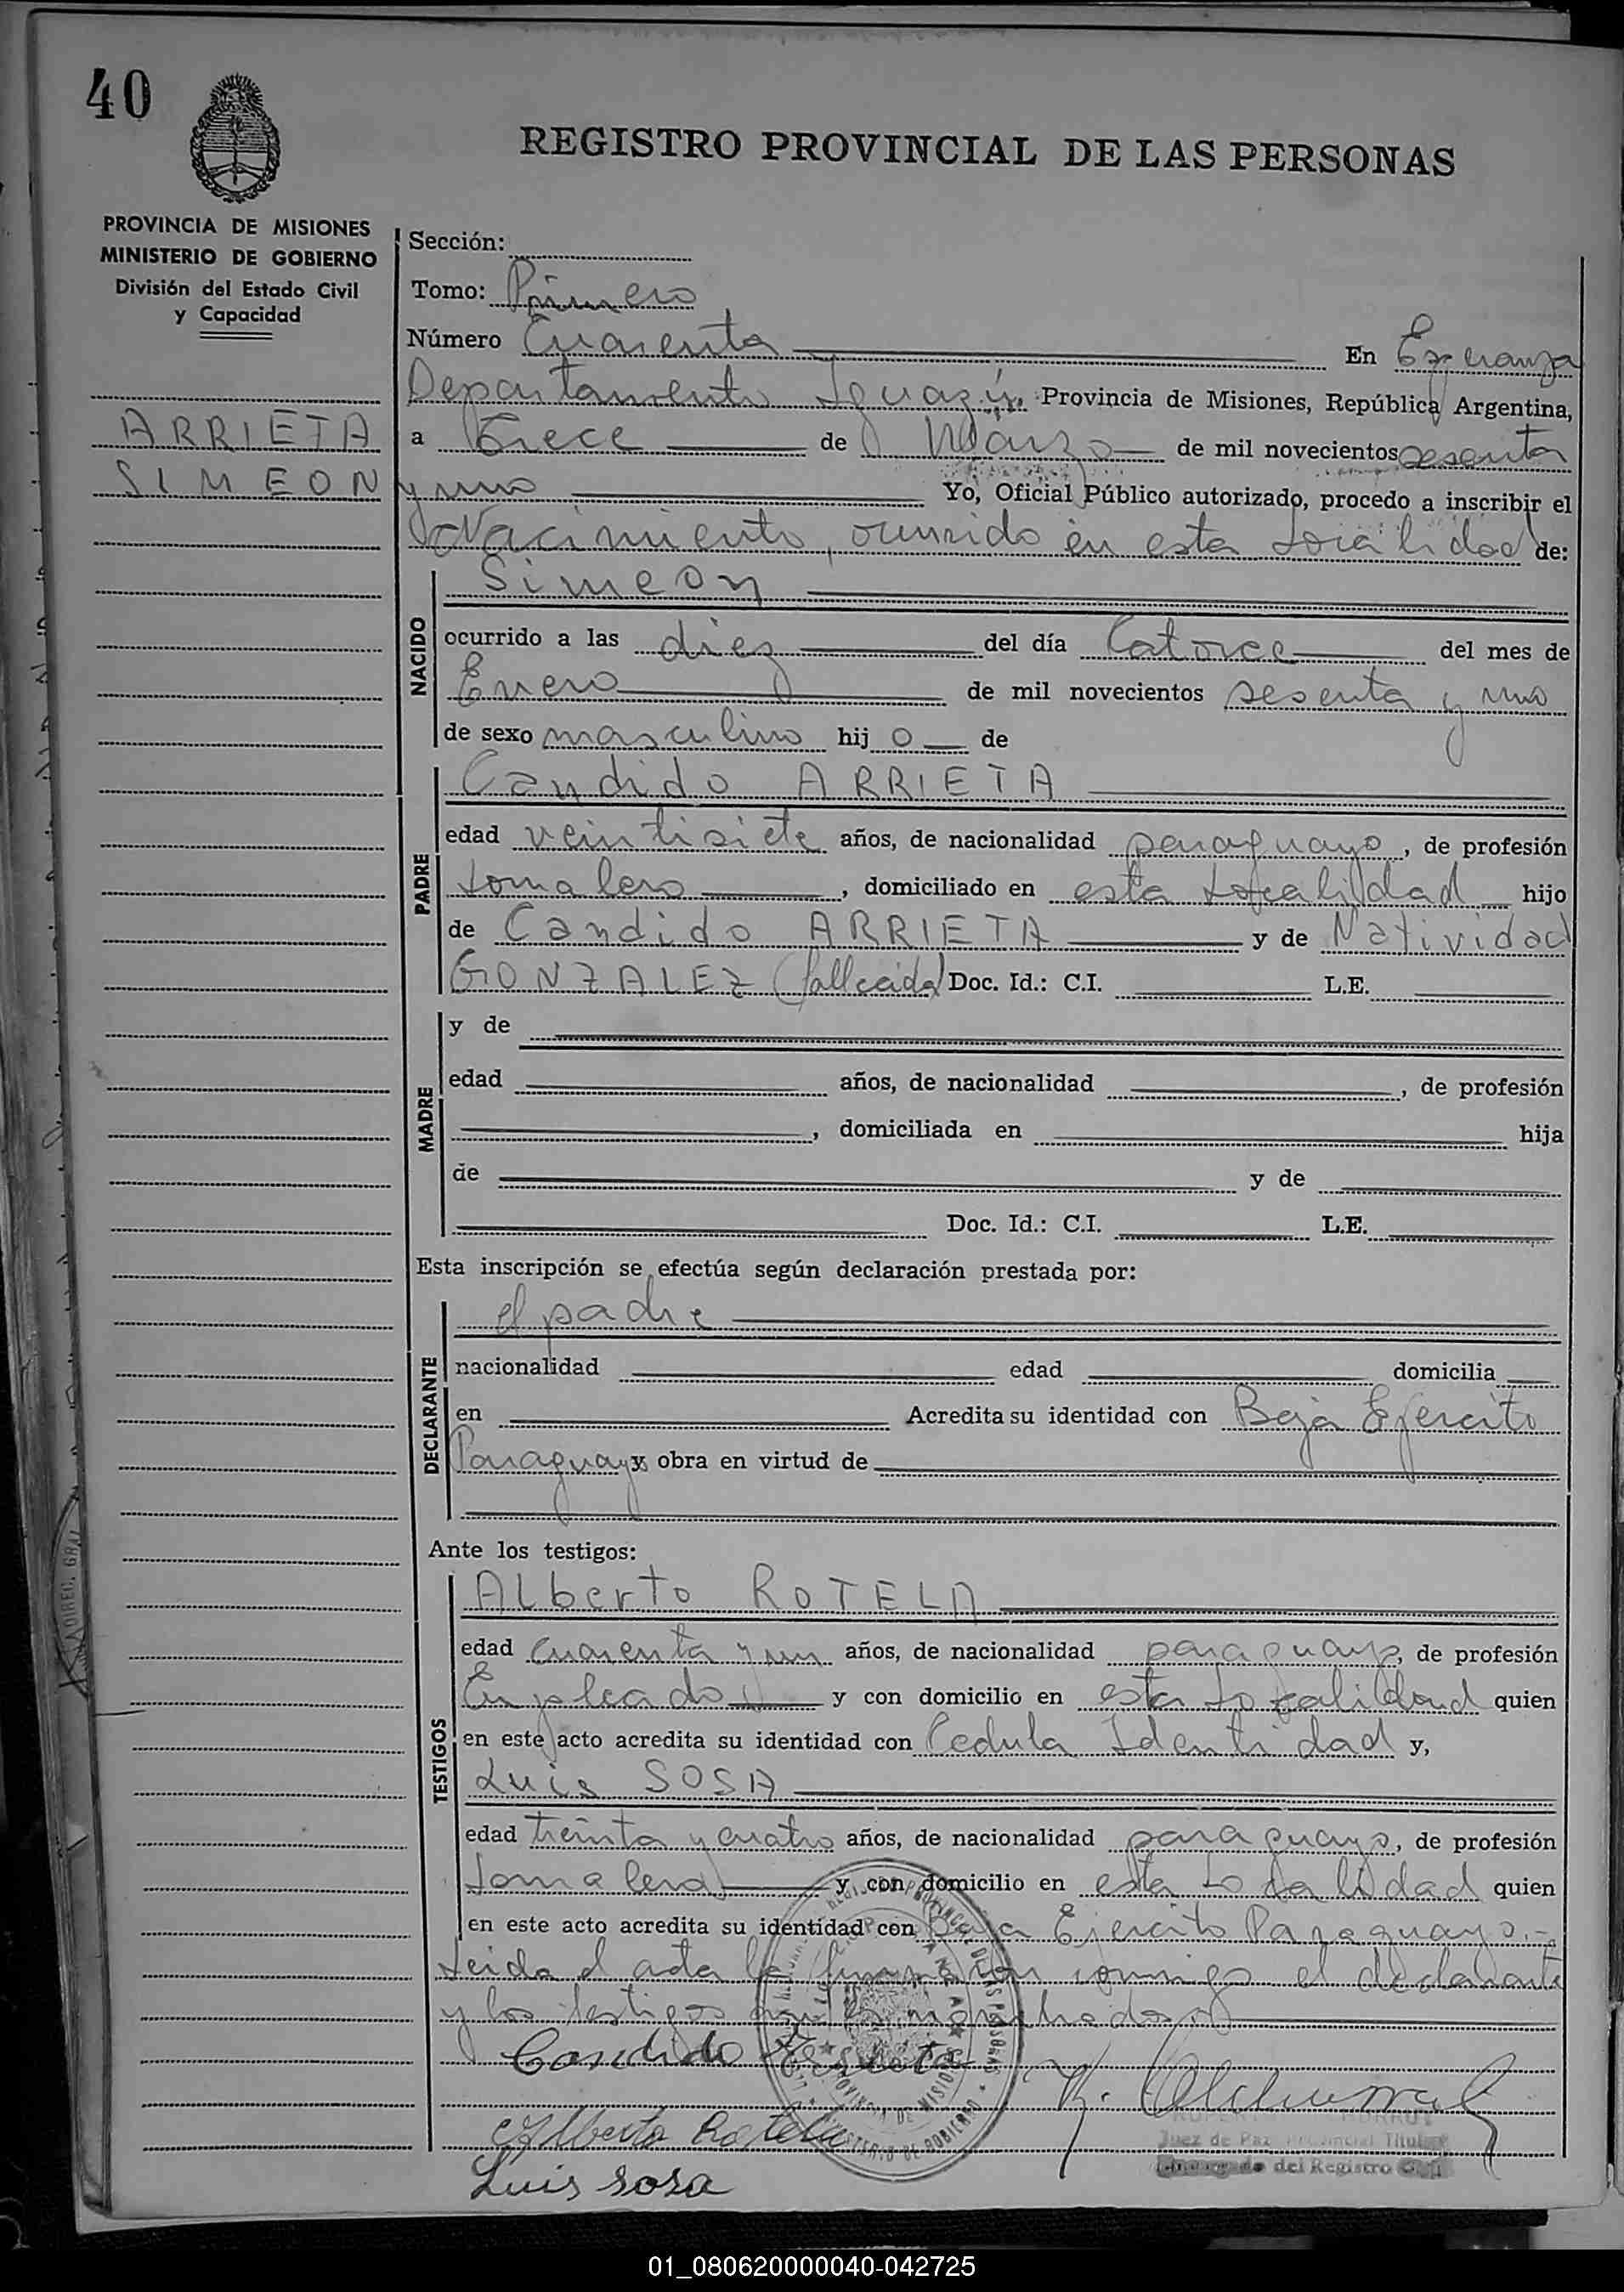 40
REGISTRO PROVINCIAL DE LAS PERSONAS
PROVINCIA DE MISIONES
MINISTERIO DE GOBIERNO
División del Estado Civil
y Capacidad
ARRIETA
SIMEON
Sección:
Tomo: Primero
Número Cuarenta En Esperanza
Departamento Iguazú, Provincia de Misiones, República Argentina,
a Trece de Marzo de mil novecientos sesenta
y uno Yo, Oficial Público autorizado, procedo a inscribir el
Nacimiento, ocurrido en esta Localidad de:
NACIDO
Simeon
ocurrido a las diez del día Catorce del mes de
Enero de mil novecientos sesenta y uno
de sexo masculino hij o de
PADRE
Candido ARRIETA
edad veintisiete años, de nacionalidad paraguayo, de profesión
Jornalero, domiciliado en esta Localidad hijo
de Candido ARRIETA y de Natividad
GONZALEZ (fallecida) Doc. Id.: C.I. L.E.
MADRE
y de
edad años, de nacionalidad , de profesión
, domiciliada en hija
de y de
Doc. Id.: C.I. L.E.
Esta inscripción se efectúa según declaración prestada por:
DECLARANTE
el padre
nacionalidad edad domicilia
en Acredita su identidad con Baja Ejercito
Paraguayo y obra en virtud de
Ante los testigos:
TESTIGOS
Alberto ROTELA
edad cuarenta y un años, de nacionalidad paraguayo, de profesión
Empleado y con domicilio en esta Localidad quien
en este acto acredita su identidad con Cedula Identidad y,
Luis SOSA
edad treinta y cuatro años, de nacionalidad paraguayo, de profesión
Jornalero y con domicilio en esta Localidad quien
en este acto acredita su identidad con Baja Ejercito Paraguayo.-
Leida el acta la firman con conmigo el declarante
y los testigos nombrados.
Candido Arrieta
Alberto Rotela
Juez de Paz Provincial Titular
Encargado del Registro Civil
Luis sosa
01_080620000040-042725